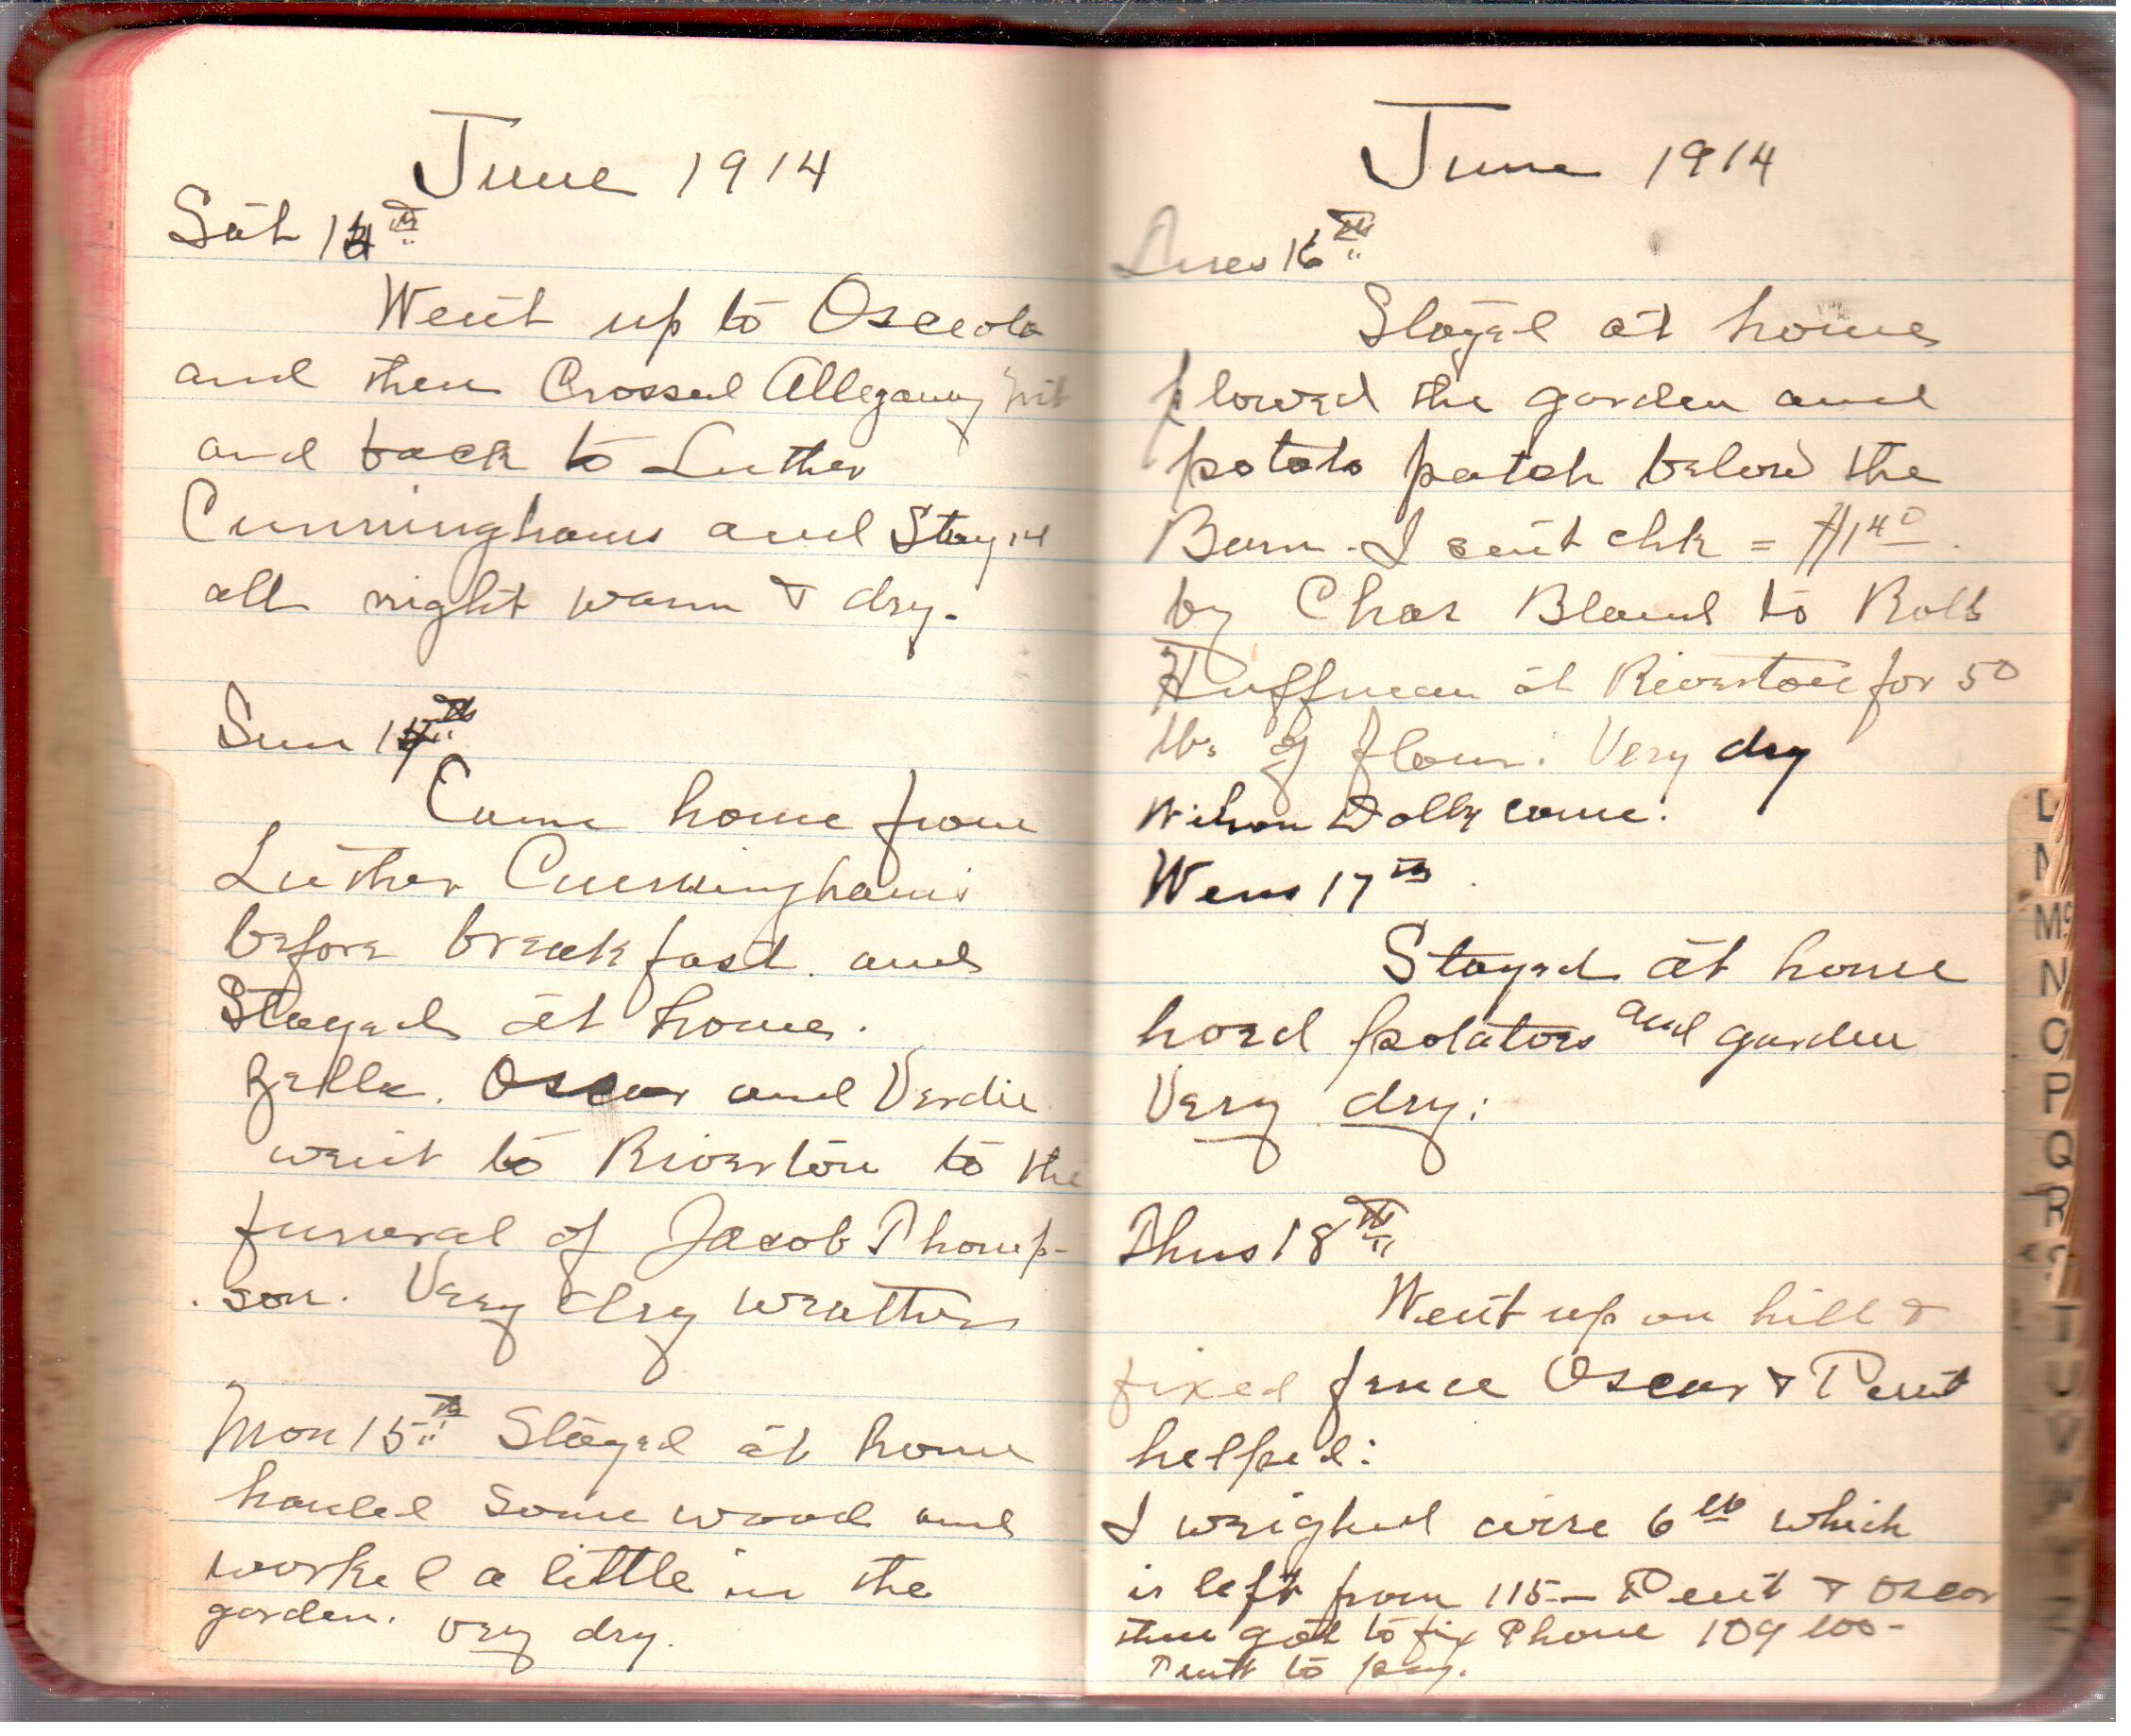 June 1914
Sat 13th
Went up to Osceola
and then Crossed Allegany
and back to Luther
Cunninghams and Stayed
all night warm & dry.
Sun 14th
Came home from
Luther Cunninghams
before breakfast. and
Stayed at home.
Zella. Oscar and Verdie
went to Riverton to the
funeral of Jacob Thomp-
son. Very dry weather
Mon 15th Stayed at home
hauled some wood and
worked a little in the
garden. very dry.
June 1914
Tues 16th
Stayed at home
plowed the garden and
potato patch below the
Barn. I sent chk = $1.40.
by Char Bland to Robt
Huffman at Riverton for 50
lbs of flour: Very dry
Wilson Dolly came.
Wens 17th
Stayed at home
hoed potatoes and garden
Very dry:
Thus 18th
Went up on hill &
fixed fence Oscar &
helped:
I weighed wire 6 lb which
is left from 115- & Oscar
then got to fix Phone 109 lbs-
to pay.
D
M
Mc
N
O
P
Q
R
S
T
U
V